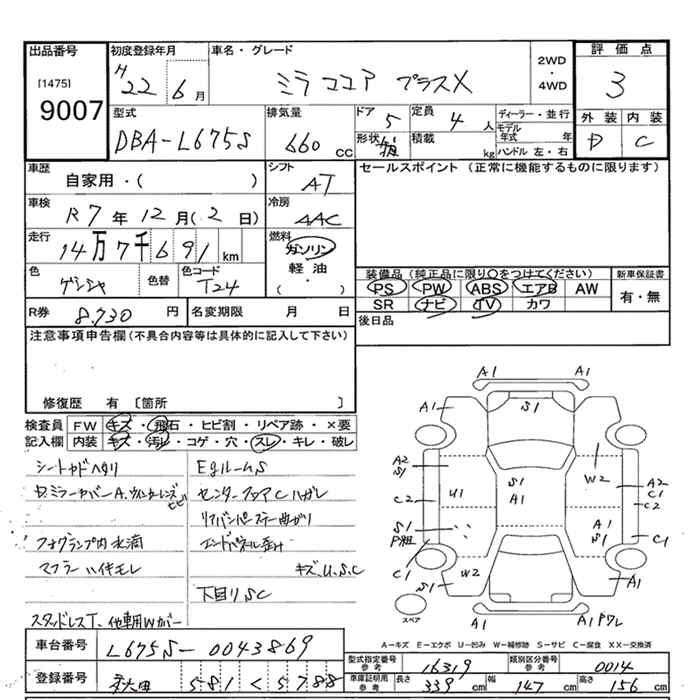 出品番号
[1475]
9007
初度登録年月
H22 6月
車名・グレード
ミラココア プラスX
2WD
・
4WD
評価点
3
外装 内装
D C
型式
DBA-L675S
排気量
660 cc
ドア 5
定員 4人
形状
積載 kg
ディーラー・並行
モデル年式 年
ハンドル 左・右
車歴
自家用・( )
シフト
AT
セールスポイント (正常に機能するものに限ります)
車検
R7年12月(2日)
冷房
AAC
走行
14万7千691km
燃料
ガソリン
軽油
( )
色
色替
色コード
T24
装備品 (純正品に限り○をつけてください)
PS PW ABS エアB AW
SR ナビ TV カワ
新車保証書
有・無
R券 8,730円
名変期限 月 日
後日品
注意事項申告欄(不具合内容等は具体的に記入して下さい)
修復歴 有 〔箇所 〕
検査員記入欄
FW キズ・飛石・ヒビ割・リペア跡・×要
内装 キズ・汚レ・コゲ・穴・スレ・キレ・破レ
シートヤケヘタリ
EgルームS
センターフロアCハガレ
リアバンパーステー曲がり
フォグランプ内水滴
エンドパネル歪み
マフラーハイキモレ
キズ、U、S、C
下回りSC
スタッドレスT、他車用Wカバー
A1 A1
A1 S1
A2 S1 W2 A2 C1
C2 U1 S1 A1 C2
S1 A1 S1
C1 C1
S1 W2 A1
スペア
A1 A1
A－キズ E－エクボ U－凹み W－補修跡 S－サビ C－腐食 XX－交換済
車台番号
L675S-0043869
型式指定番号 参考 16319
類別区分番号 参考 0014
登録番号
秋田 581 く 5788
車庫証明用 参考 長さ 339cm 幅 147cm 高さ 156cm